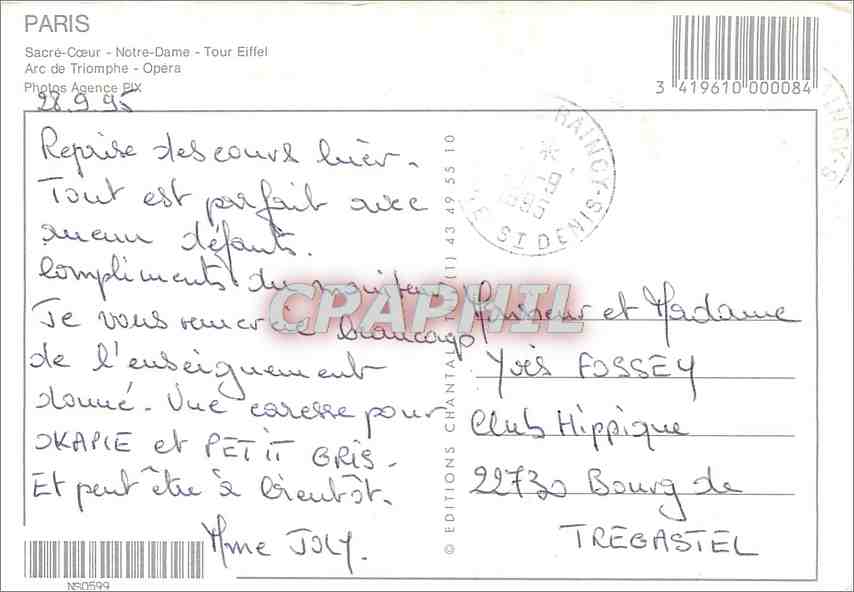 PARIS
Sacré-Cœur - Notre-Dame - Tour Eiffel
Arc de Triomphe - Opéra
Photos Agence PIX
3 419610 000084
28.9.95
Reprise des cours hier.
Tout est parfait avec
aucun défauts.
Compliments du moniteur
Je vous remercie beaucoup
de l'enseignement
donné. Une caresse pour
OKAPIE et PETIT GRIS.
Et peut être à bientôt.
Mme JOLY.
© EDITIONS CHANTAL (1) 43 49 55 10
RAINCY-S
LE ST DENIS
RAINCY-S
CPAPHIL
Monsieur et Madame
Yves FOSSEY
Club Hippique
22730 Bourg de
TREGASTEL
NS0599